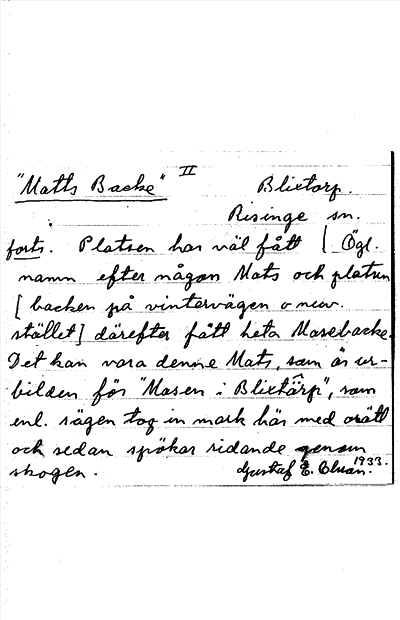 "Matts Backe" II Blixtorp.
Risinge sn.
forts. Platsen har väl fått [Ögl.
namn efter någon Mats och platsen
[backen på vintervägen o
stället] därefter fått heta Masebacke.
Det kan vara denne Mats, som är ur-
bilden för "Masen i Blixtärp", som
enl. sägen tog in mark här med orätt
och sedan spökar ridande genom
skogen. Gustaf E. 1933.